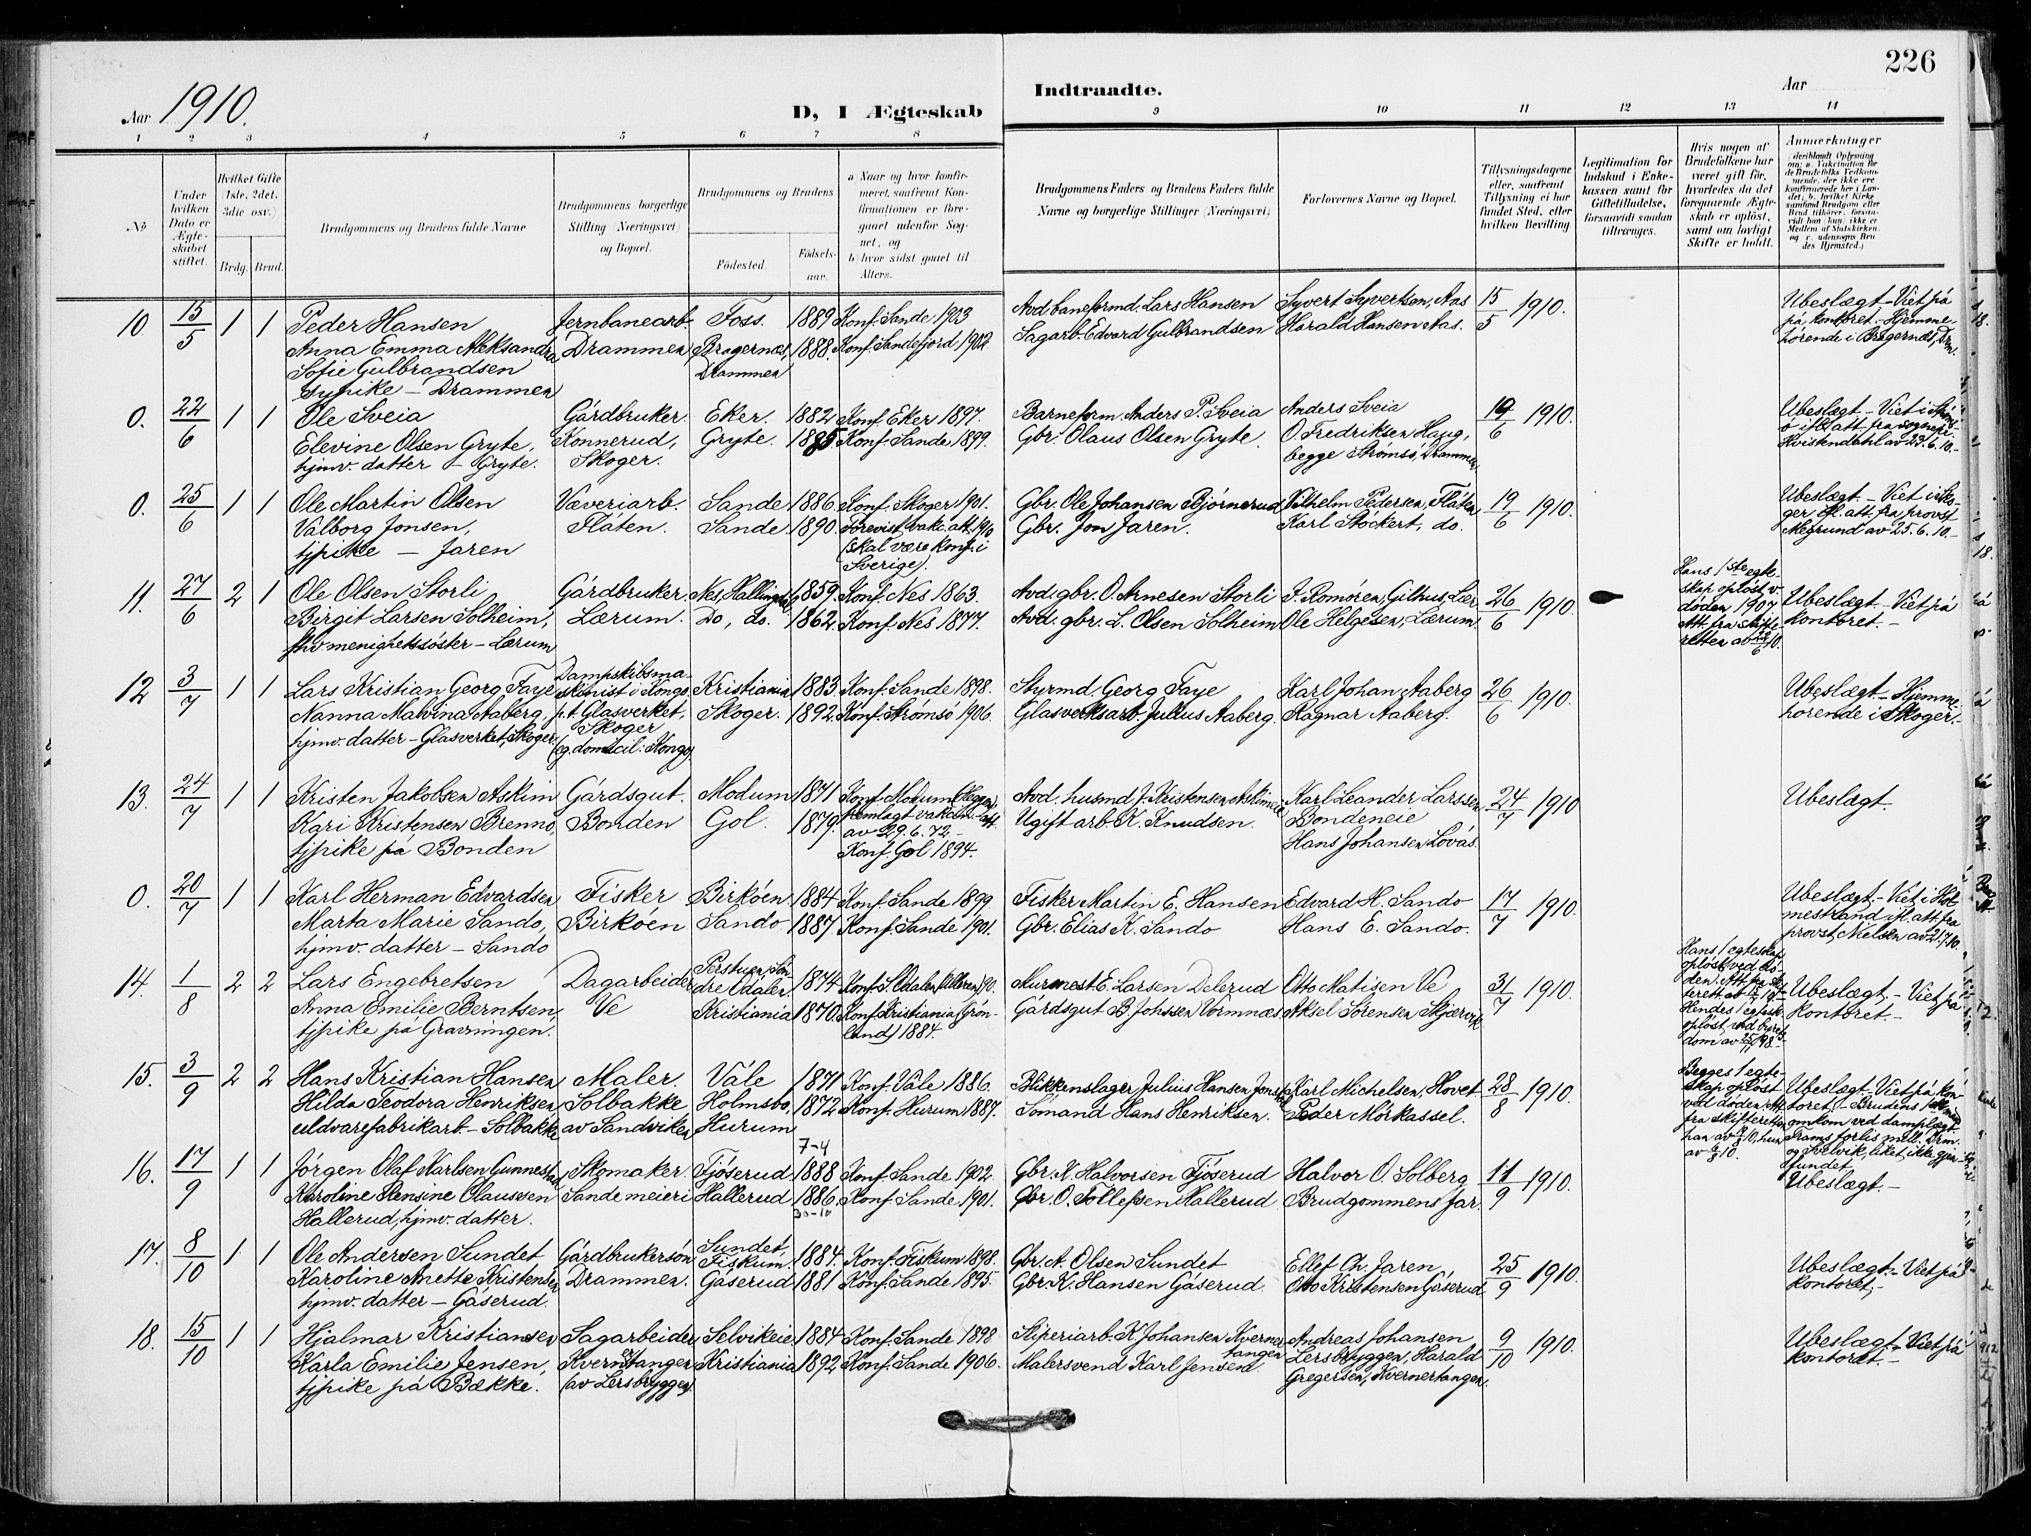 Aar 1910.
D, I Ægteskab
Indtraadte.
Aar
226
1 2 3 4 5 6 7 8 9 10 11 12 13 14
No
Under hvilken Dato er Ægteskabet stiftet.
Hvilket Gifte (1ste, 2det, 3die osv.)
Brdg. Brud.
Brudgommens og Brudens fulde Navne
Brudgommens borgerlige Stilling (Næringsvei) og Bopæl.
Brudgommens og Brudens
Fødested.
Fødselsaar.
a) Naar og hvor konfirmeret, saafremt Konfirmationen er foregaaet udenfor Sognet, og
b) hvor sidst gaaet til Alters.
Brudgommens Faders og Brudens Faders fulde Navne og borgerlige Stillinger (Næringsvei)
Forlovernes Navne og Bopæl.
Tillysningsdagene eller, saafremt Tillysning ei har fundet Sted, efter hvilken Bevilling.
Legitimation for Indskud i Enkekassen samt for Giftetilladelse, forsaavidt saadan tiltrænges.
Hvis nogen af Brudefolkene har været gift før, hvorledes da det foregaaende Ægteskab er opløst, samt om lovligt Skifte er holdt.
Anmærkninger
10 15/5 1 1 Peder Hansen Jernbanearb. Foss. 1889 Konf. Sande 1903 Avd. baneformd. Lars Hansen Syvert Syvertsen, Aas 15/5 1910. Ubeslægt - Viet på
Anna Emma Aleksandra Drammen Bragernæs, Drammen 1888. Konf. Sandefjord 1902 Sagarb. Edvard Gulbrandsen Harald Hansen Aas. på kontoret. - Hjemmehörende i Bragernæs, Drm.
Sofie Gulbrandsen
sypike - Drammen
0. 22/6 1 1 Ole Sveia Gårdbruker Eker. 1882 Konf. Eker 1897. Baneform. Anders P. Sveia Anders Sveia 19/6 1910. Ubeslægt - Viet i Strömsö
Elevine Olsen Gryte, Konnerud, Gryte. 1885. Konf. Sande 1899. Gbr. Olaus Olsen Gryte. O. Fredriksen Haug, ifl. att. fra sognepr.
hjmv. datter - Gryte. Skoger. begge Strømsö, Drammen Hvistendahl av 23.6.10.-
0. 25/6 1 1 Ole Martin Olsen Væveriarb. Sande 1886 Konf. Skoger 1901. Gbr. Ole Johansen Bjórnerud Vilhelm Pedersen, Flåten 19/6 1910. Ubeslægt - Viet i Skoger
Valborg Jonsen, Flåten. Sande 1890 Forevist vakc. att. 1910 Gbr. Jon Jaren. Karl Stockert, do. ifl. att. fra provst
tjpike - Jaren (skal være konf. i Sverige). Megrund av 25.6.10.-
11. 27/6 2 1 Ole Olsen Storli Gårdbruker Nes, Hallingdal 1859. Konf. Nes 1863. Avd. gbr. O. Arnesen Storli J. Romören, Gilhus, Lier 26/6 1910. Hans 1ste egteskap oplöst v. döden 1907 Att. fra skifteretten av 22/6 10. Ubeslægt - Viet på
Birgit Larsen Solheim, Lærum. Do, do. 1862 Konf. Nes 1877. Avd. gbr. L. Olsen Solheim Ole Helgesen, Lærum. kontoret.-
fhv menighetssöster - Lærum
12 3/7 1 1 Lars Kristian Georg Faye Dampskibsmaskinist i Kongo Kristiania 1883. Konf. Sande 1898. Styrmd. Georg Faye Karl Johan Aaberg 26/6 1910. Ubeslægt - Hjemmehörende i Skoger.
Nanna Malvina Aaberg, p.t. Glasverket, Skoger Skoger. 1892 Konf. Strømsó 1906. Glasverksarb. Julius Aaberg. Ragnar Aaberg.
hjmv. datter - Glasverket, Skoger. (eg. domicil: Kongo)
13. 24/7 1 1 Kristen Jakobsen Askim Gårdsgut. Modum 1871 Konf. Modum (Heggen) Avd. husmd J. Kristensen Askimeie Karl Leander Larssen 24/7 1910 Ubeslægt.
Kari Kristensen Brenno, Bonden Gol. 1879. fremlagt vakcin. att. av 29.6.72.- Ugift arb. K. Knudsen. Bondeneie
tjpike på Bonden Konf. Gol 1894. Hans Johansen Lovås.
0. 20/7 1 1 Karl Herman Edvardsen Fisker Birköen 1884 Konf. Sande 1899. Fisker Martin E. Hansen Edvard H. Sando 17/7 1910. Ubeslægt.- Viet i Holmestrand ifl. att. fra
Marta Marie Sando, Birköen Sando 1887 Konf. Sande 1901. Gbr. Elias K. Sando Hans E. Sando. provst Nielsen av 21.7.10.
hjmv. datter - Sando
14. 1/8 2 2 Lars Engebretsen Dagarbeider Söndre Odalen 1874 Konf. S. Odalen Murmest. E. Larsen Delerud Otto Matisen Ve 31/7 1910. Hans 1 egteskap oplöst ved döden. Ubeslægt.- Viet på
Anna Emilie Berntsen Ve Kristiania 1870. Konf. Kristiania (Grönland) 1884. Gårdsgut B. Johssen Vormnæs Aksel Sörensen Skjærvik Hendes 1 egtesk. oplöst ved byretsdom av 25/11 98.- kontoret.-
tjpike på Gravningen.
15. 3/9 2 2 Hans Kristian Hansen Maler. Våle 1871 Konf. Våle 1886. Blikkenslager Julius Hansen Karl Michelsen, Hovet 28/8 1910. Begges 1 egteskap oplöst ved döden. Att. fra skifteretten Ubeslægt.- Viet på kontoret.- Brudens 1
Hilda Teodora Henriksen Solbakke Holmsbo, 1872 Konf. Hurum 1887. Sömand Hans Henriksen. Peder Mörkassel. omkom ved dampskibet Frams forlis mell. Drm. og Svelvik, liket ikke gjenfundet.
uldvarefabrikarb. - Solbakke av Sandviken Hurum
7-4
16. 17/9 1 1 Jörgen Olaf Karlsen Gunnestad Skomaker Fjöserud 1888 Konf. Sande 1902. Gbr. K. Halvorsen Fjöserud Halvor O. Solberg 11/9 1910. Ubeslægt.-
Karoline Stensine Olaussen Sande meieri Hallerud 1886. Konf. Sande 1901. Gbr. O. Tollefsen Hallerud Brudgommens far.
Hallerud, hjmv. datter. 30-10
17. 8/10 1 1 Ole Andersen Sundet Gårdbrukersön Sundet, Fiskum 1884. Konf. Fiskum 1898. Gbr. A. Olsen Sundet Ellef Ch. Jaren, 25/9 1910. Ubeslægt.- Viet på
Karoline Anette Kristensen Drammen. Gåserud 1881 Konf. Sande 1895. Gbr. K. Hansen Gåserud. Otto Kristensen Gåserud kontoret.-
hjmv. datter - Gåserud.
18. 15/10 1 1 Hjalmar Kristiansen Sagarbeider Selvikeie 1884 Konf. Sande 1898 Sliperiarb. K. Johansen Kvernertangen Andreas Johansen 9/10 1910. Ubeslægt.- Viet på
Karla Emilie Jensen, Kvernertangen Kristiania 1892 Konf. Sande 1906. Malersvend Karl Jensen Lersbryggen, Harald kontoret.-
tjpike på Bække. (av Lersbryggen) Gregersen, Kvernertangen.